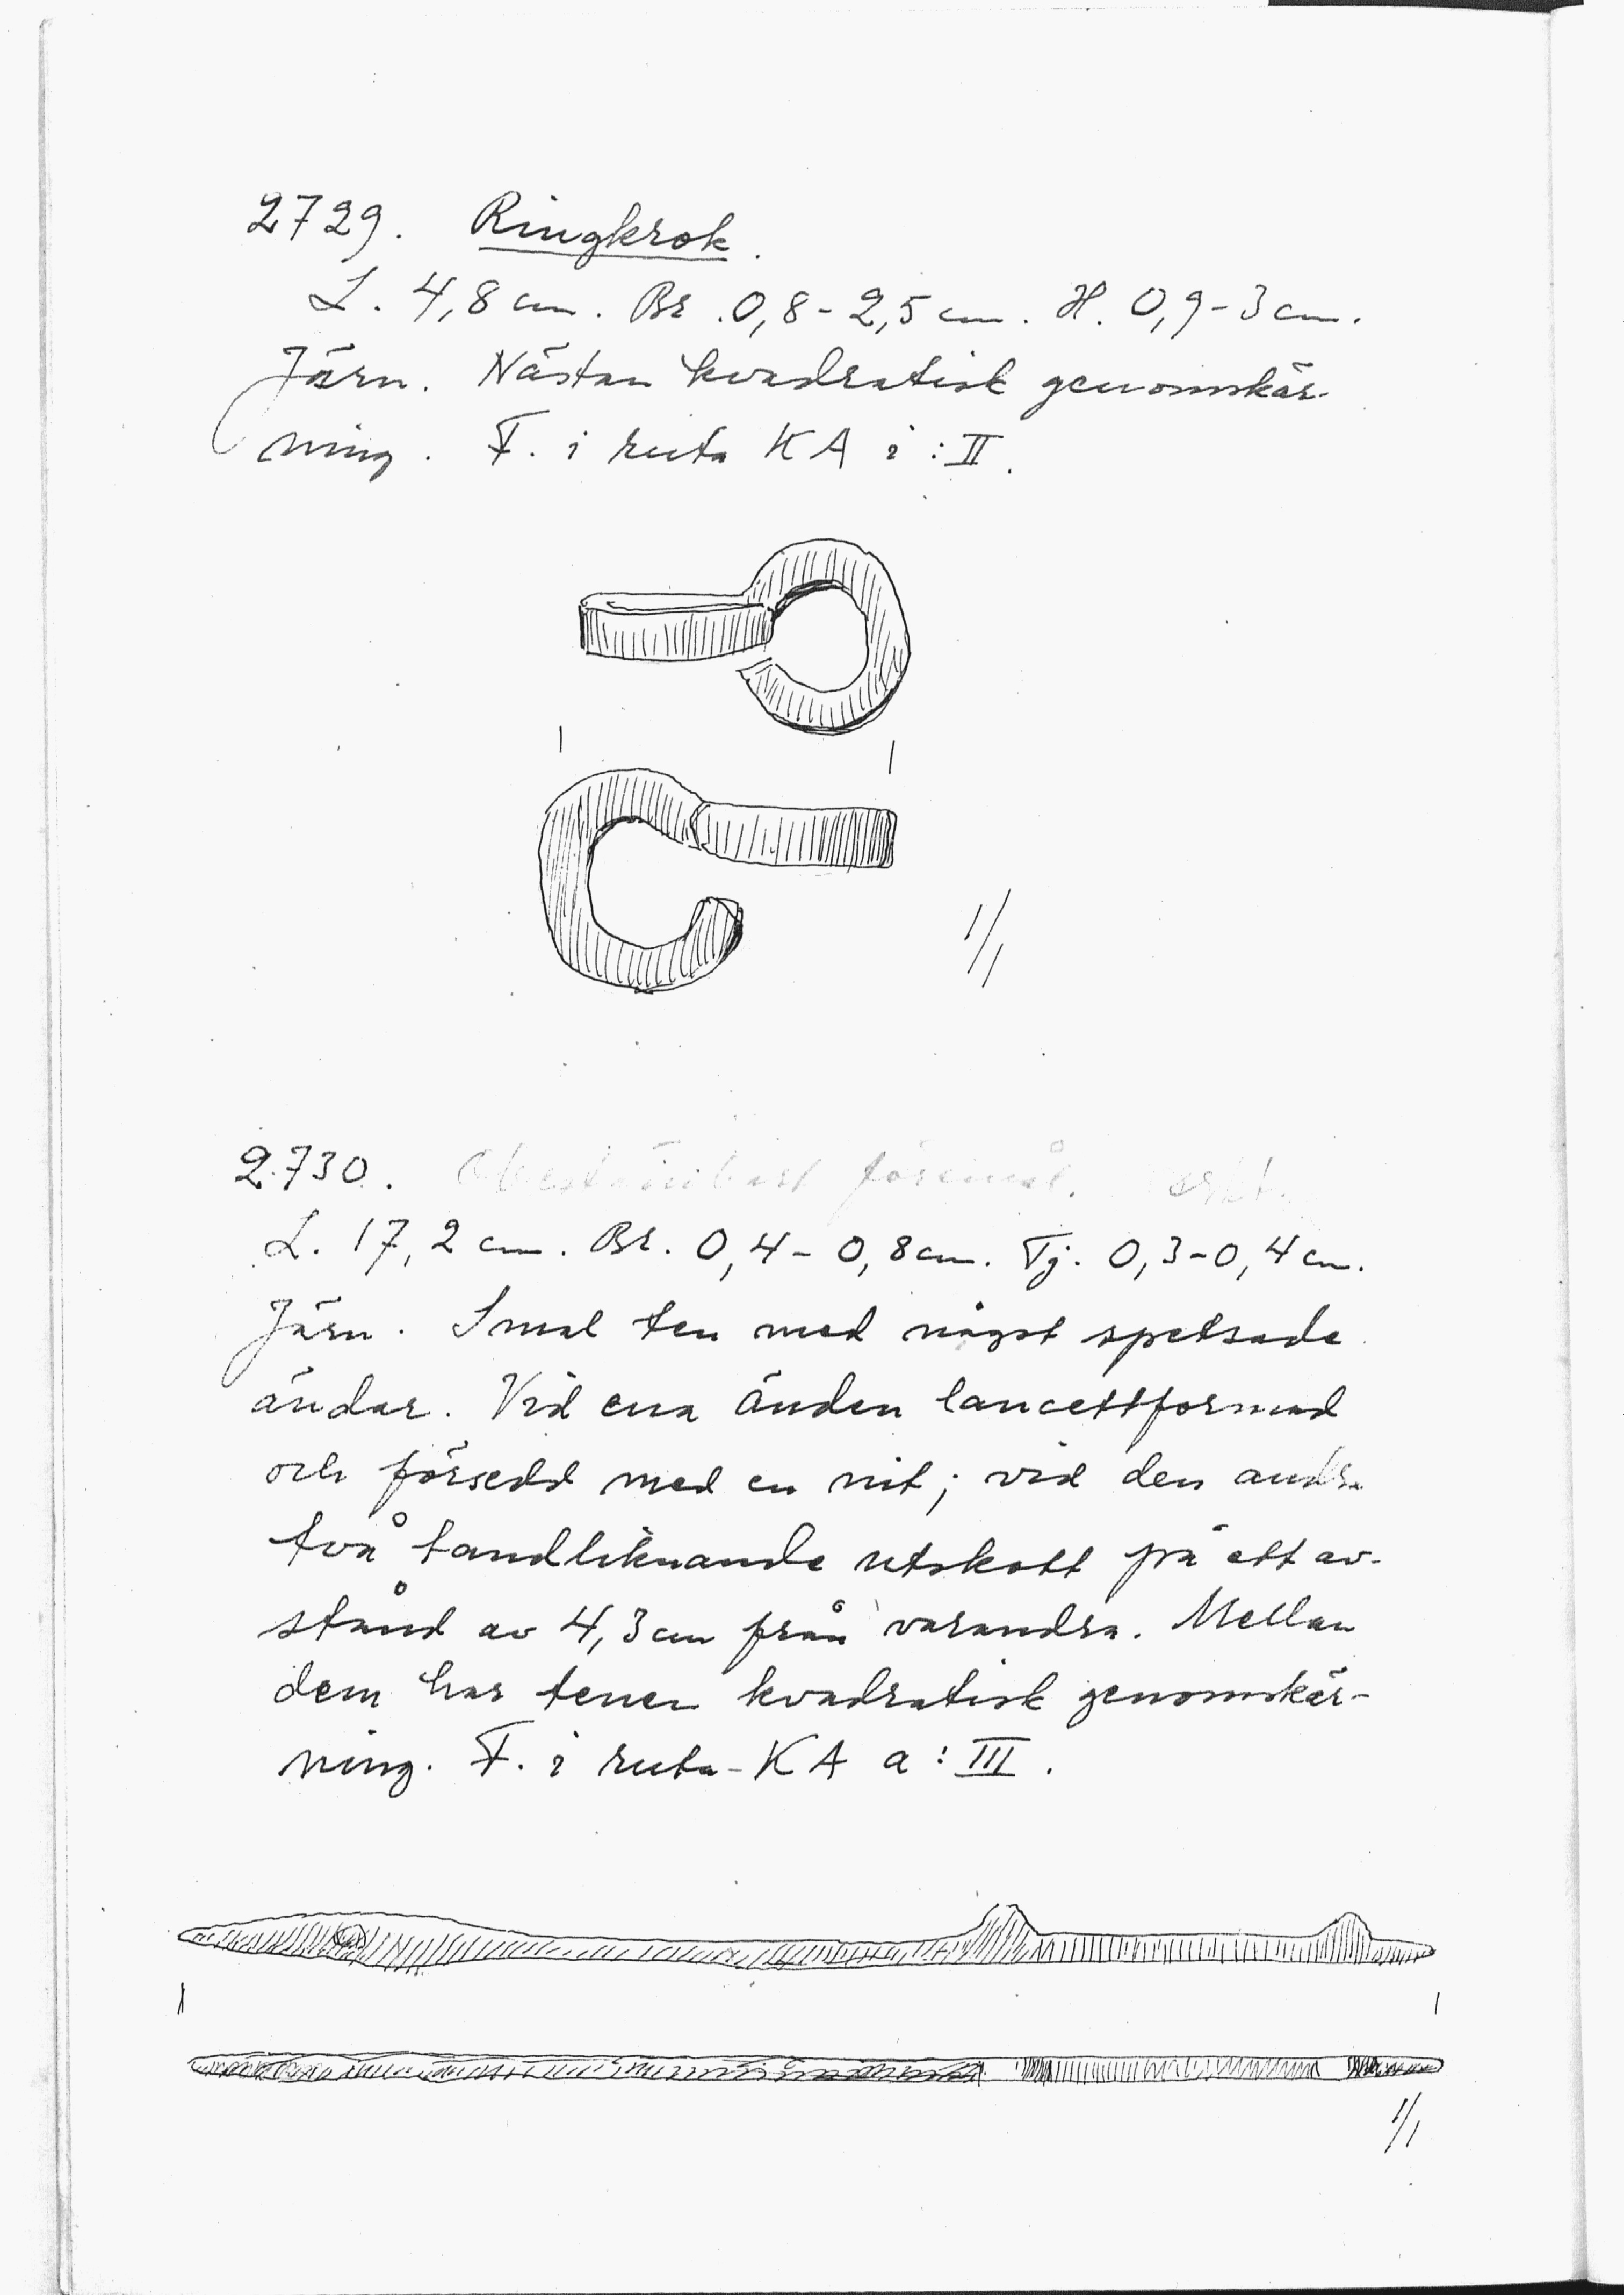 2729. Ringkrok.
L. 4,8 cm. Br. 0,8 - 2,5 cm. H. 0,9 - 3 cm.
Järn. Nästan kvadratisk genomskär-
ning. F. i ruta KA i : II.
1/1
2730. Obestämbart föremål.
L. 17,2 cm. Br. 0,4 - 0,8 cm. Tj. 0,3 - 0,4 cm.
Järn. Smal ten med något spetsade
ändar. Vid ena änden lancettformad
och försedd med en nit; vid den andra
två tandliknande utskott på ett av-
stånd av 4,3 cm från varandra. Mellan
dem har tenen kvadratisk genomskär-
ning. F. i ruta KA a : III.
1/1